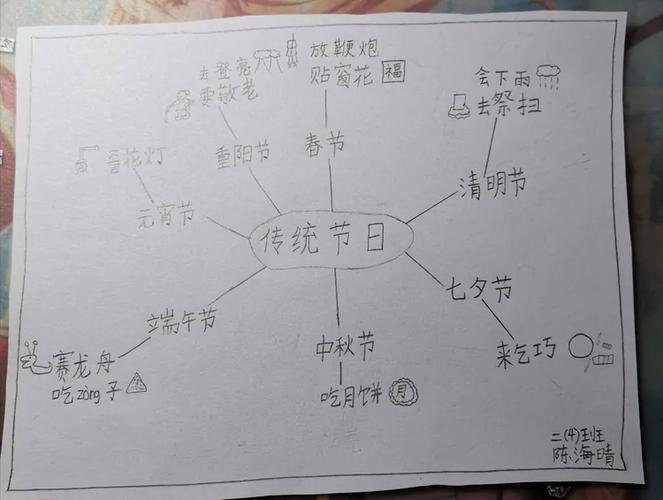 传统节日
春节
放鞭炮
贴窗花
福
清明节
会下雨
去祭扫
七夕节
来乞巧
中秋节
吃月饼
月
端午节
赛龙舟
吃zòng子
元宵节
花灯
重阳节
去登高
要敬老
二(4)班
陈海晴